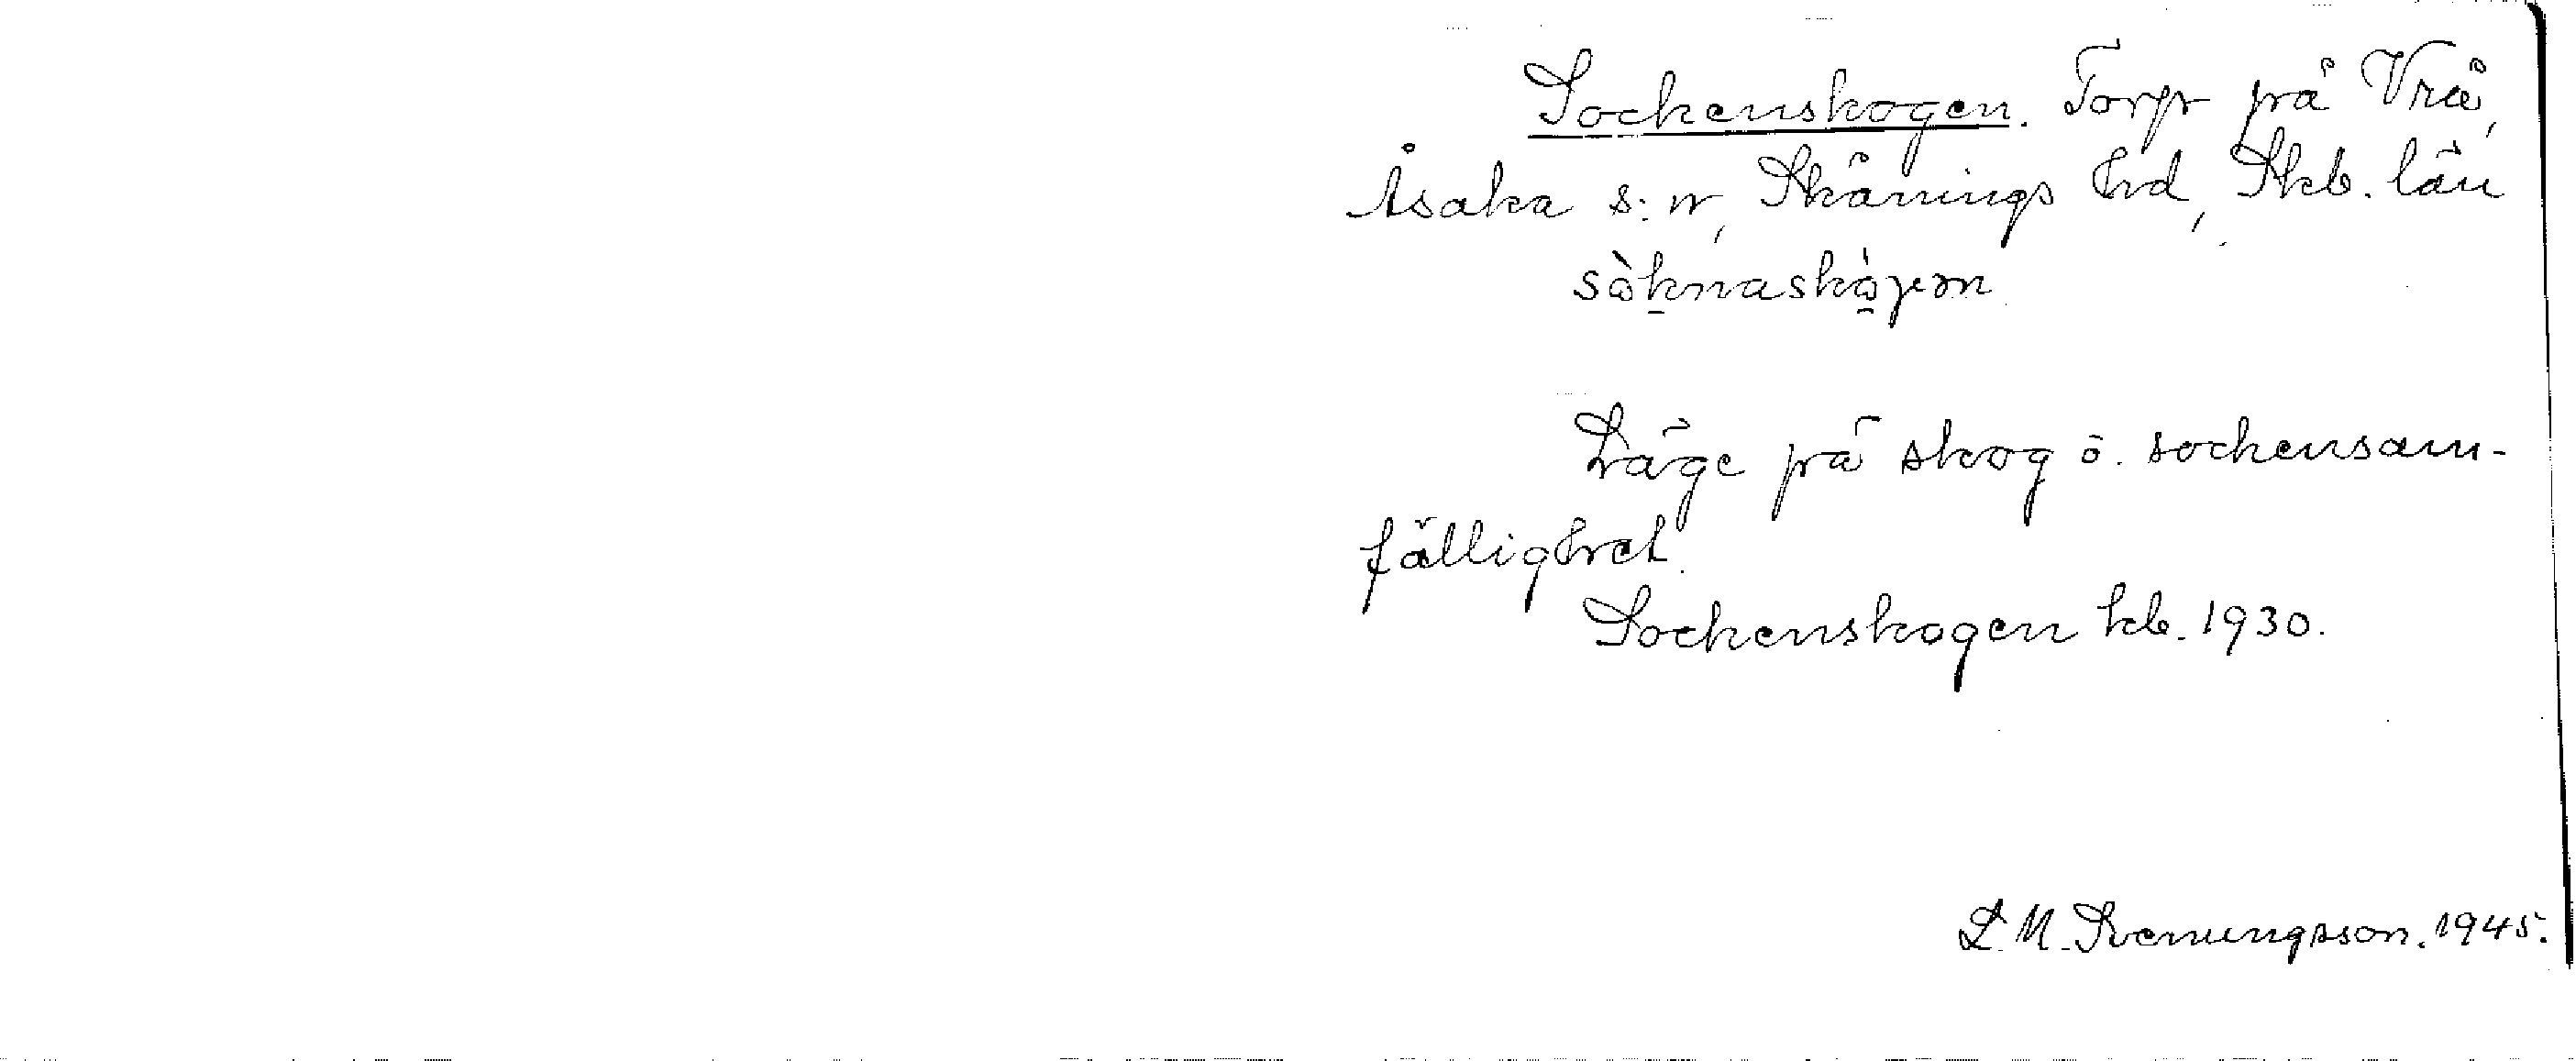 Sockenskogen. Torp på Vrå,
Åsaka s:n, Skånings hd, Skb. län
sòknaskògen
Läge på skog o. sockensam-
fällighet.
Sockenskogen kb. 1930.
L. M. Svenungsson. 1945.